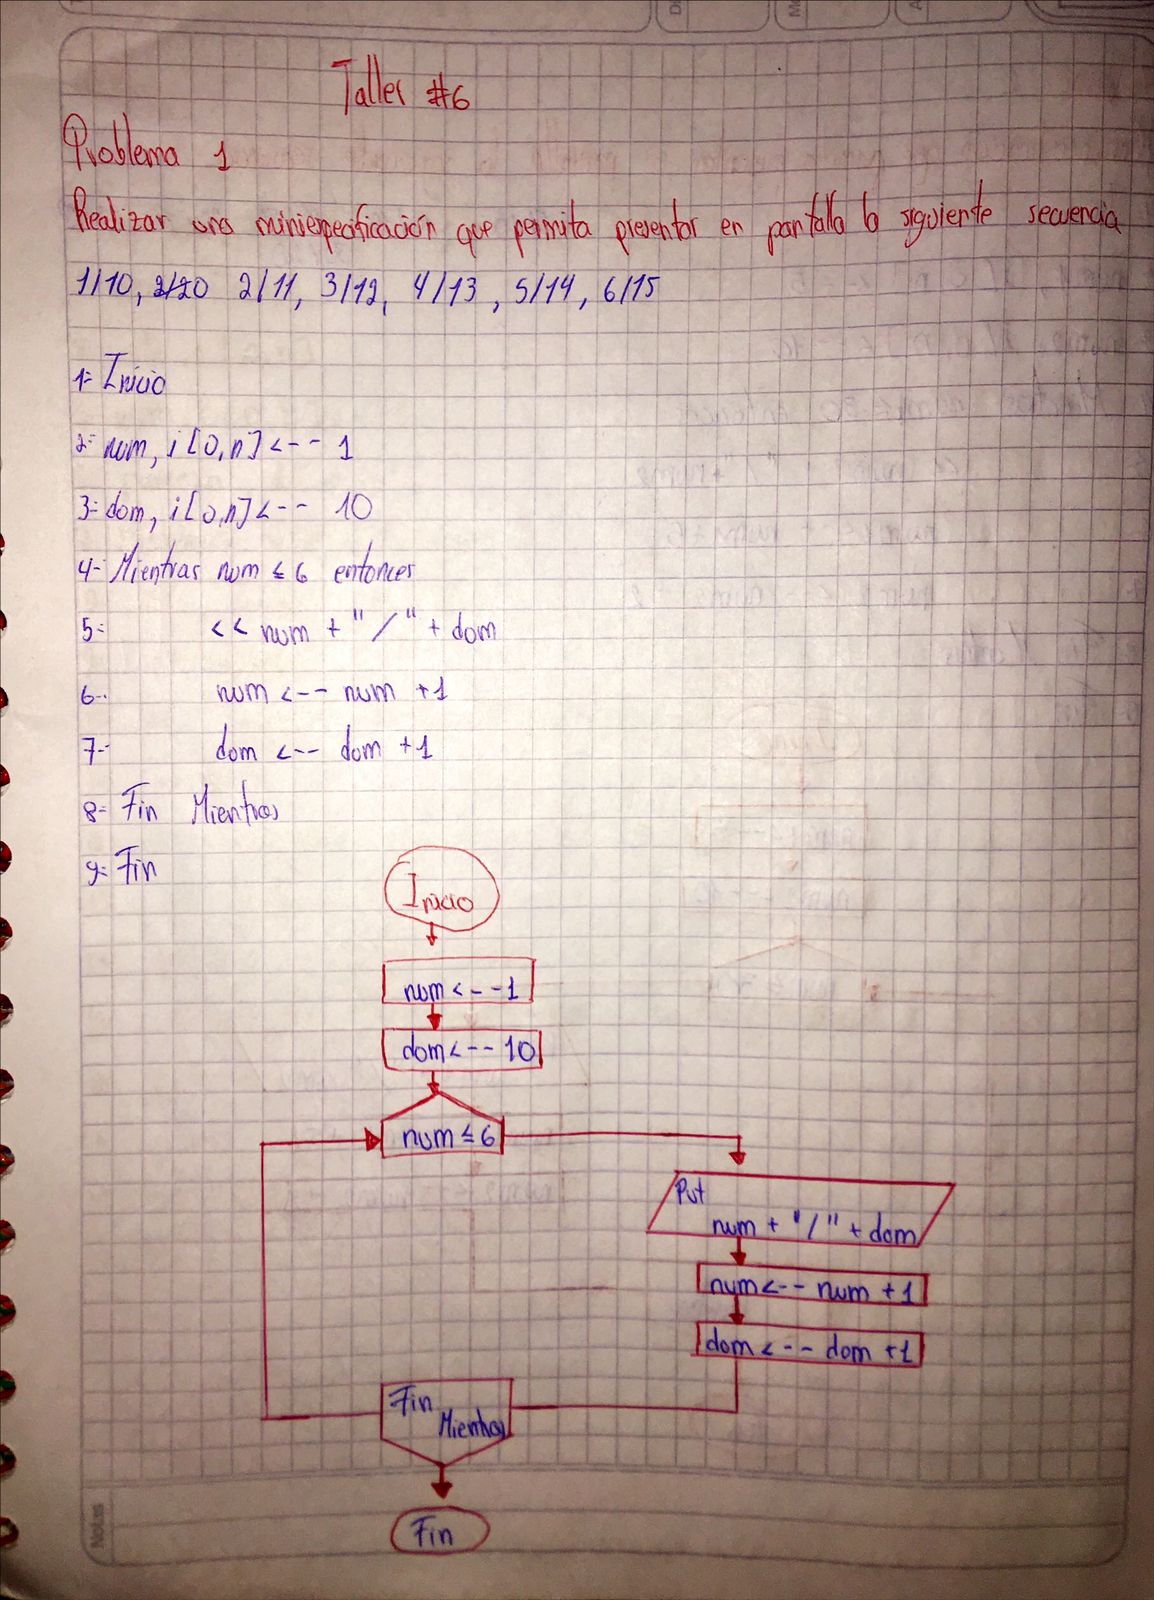 Taller #6
Problema 1
Realizar una miniespecificación que permita presentar en pantalla la siguiente secuencia
1/10, 2/20 2/11, 3/12, 4/13, 5/14, 6/15
1- Inicio
2- num, i[0,n] <-- 1
3- dom, i[0,n] <-- 10
4- Mientras num ≤ 6 entonces
5- << num + "/" + dom
6- num <-- num +1
7- dom <-- dom +1
8- Fin Mientras
9- Fin
Inicio
num <--1
dom <-- 10
num ≤ 6
Put
num + "/" + dom
num <-- num +1
dom <-- dom +1
Fin
Mientras
Fin
Notas